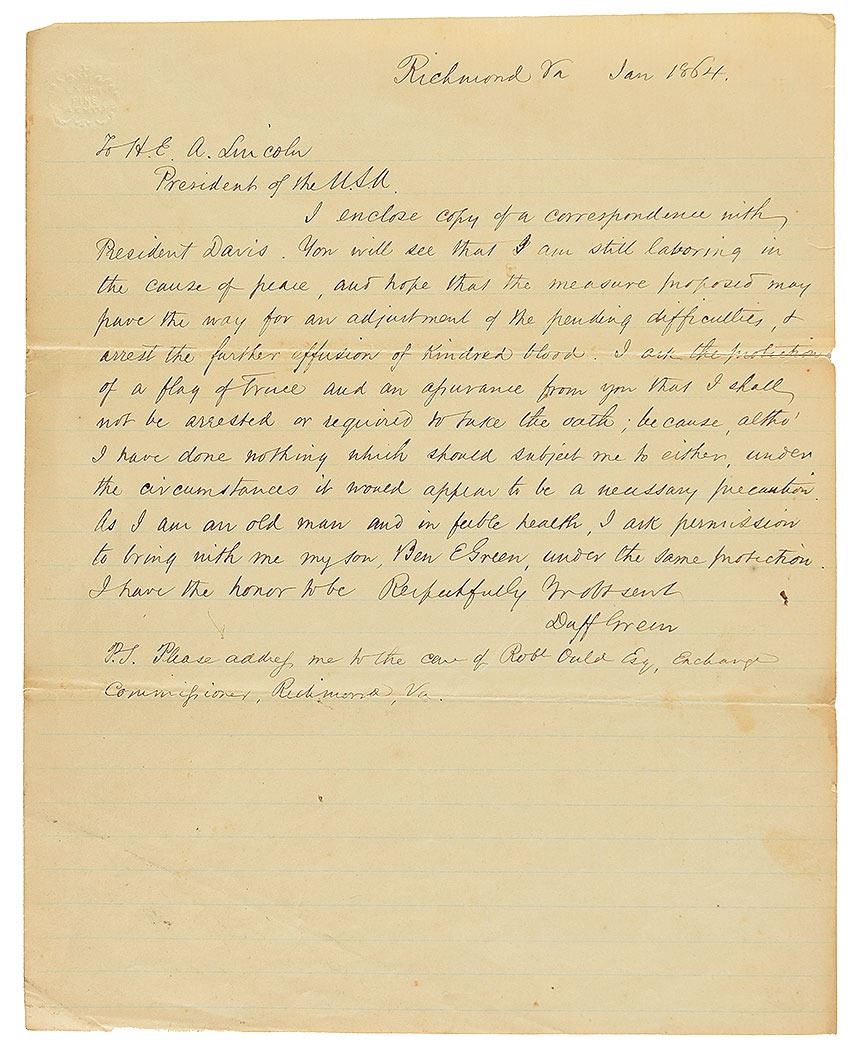 Richmond Va Jan 1864.
To H. E. A. Lincoln
President of the U.S.A.
I enclose copy of a correspondence with
President Davis. You will see that I am still laboring in
the cause of peace, and hope that the measure proposed may
pave the way for an adjustment of the pending difficulties, &
arrest the further effusion of kindred blood. I ask the protection
of a flag of truce and an assurance from you that I shall
not be arrested or required to take the oath; because, altho'
I have done nothing which should subject me to either, under
the circumstances it would appear to be a necessary precaution.
As I am an old man and in feeble health, I ask permission
to bring with me my son, Ben E Green, under the same protection.
I have the honor to be Respectfully Yr obt sevt
Duff Green
P.S. Please address me to the care of Robt Ould Esq, Exchange
Commissioner, Richmond, Va.